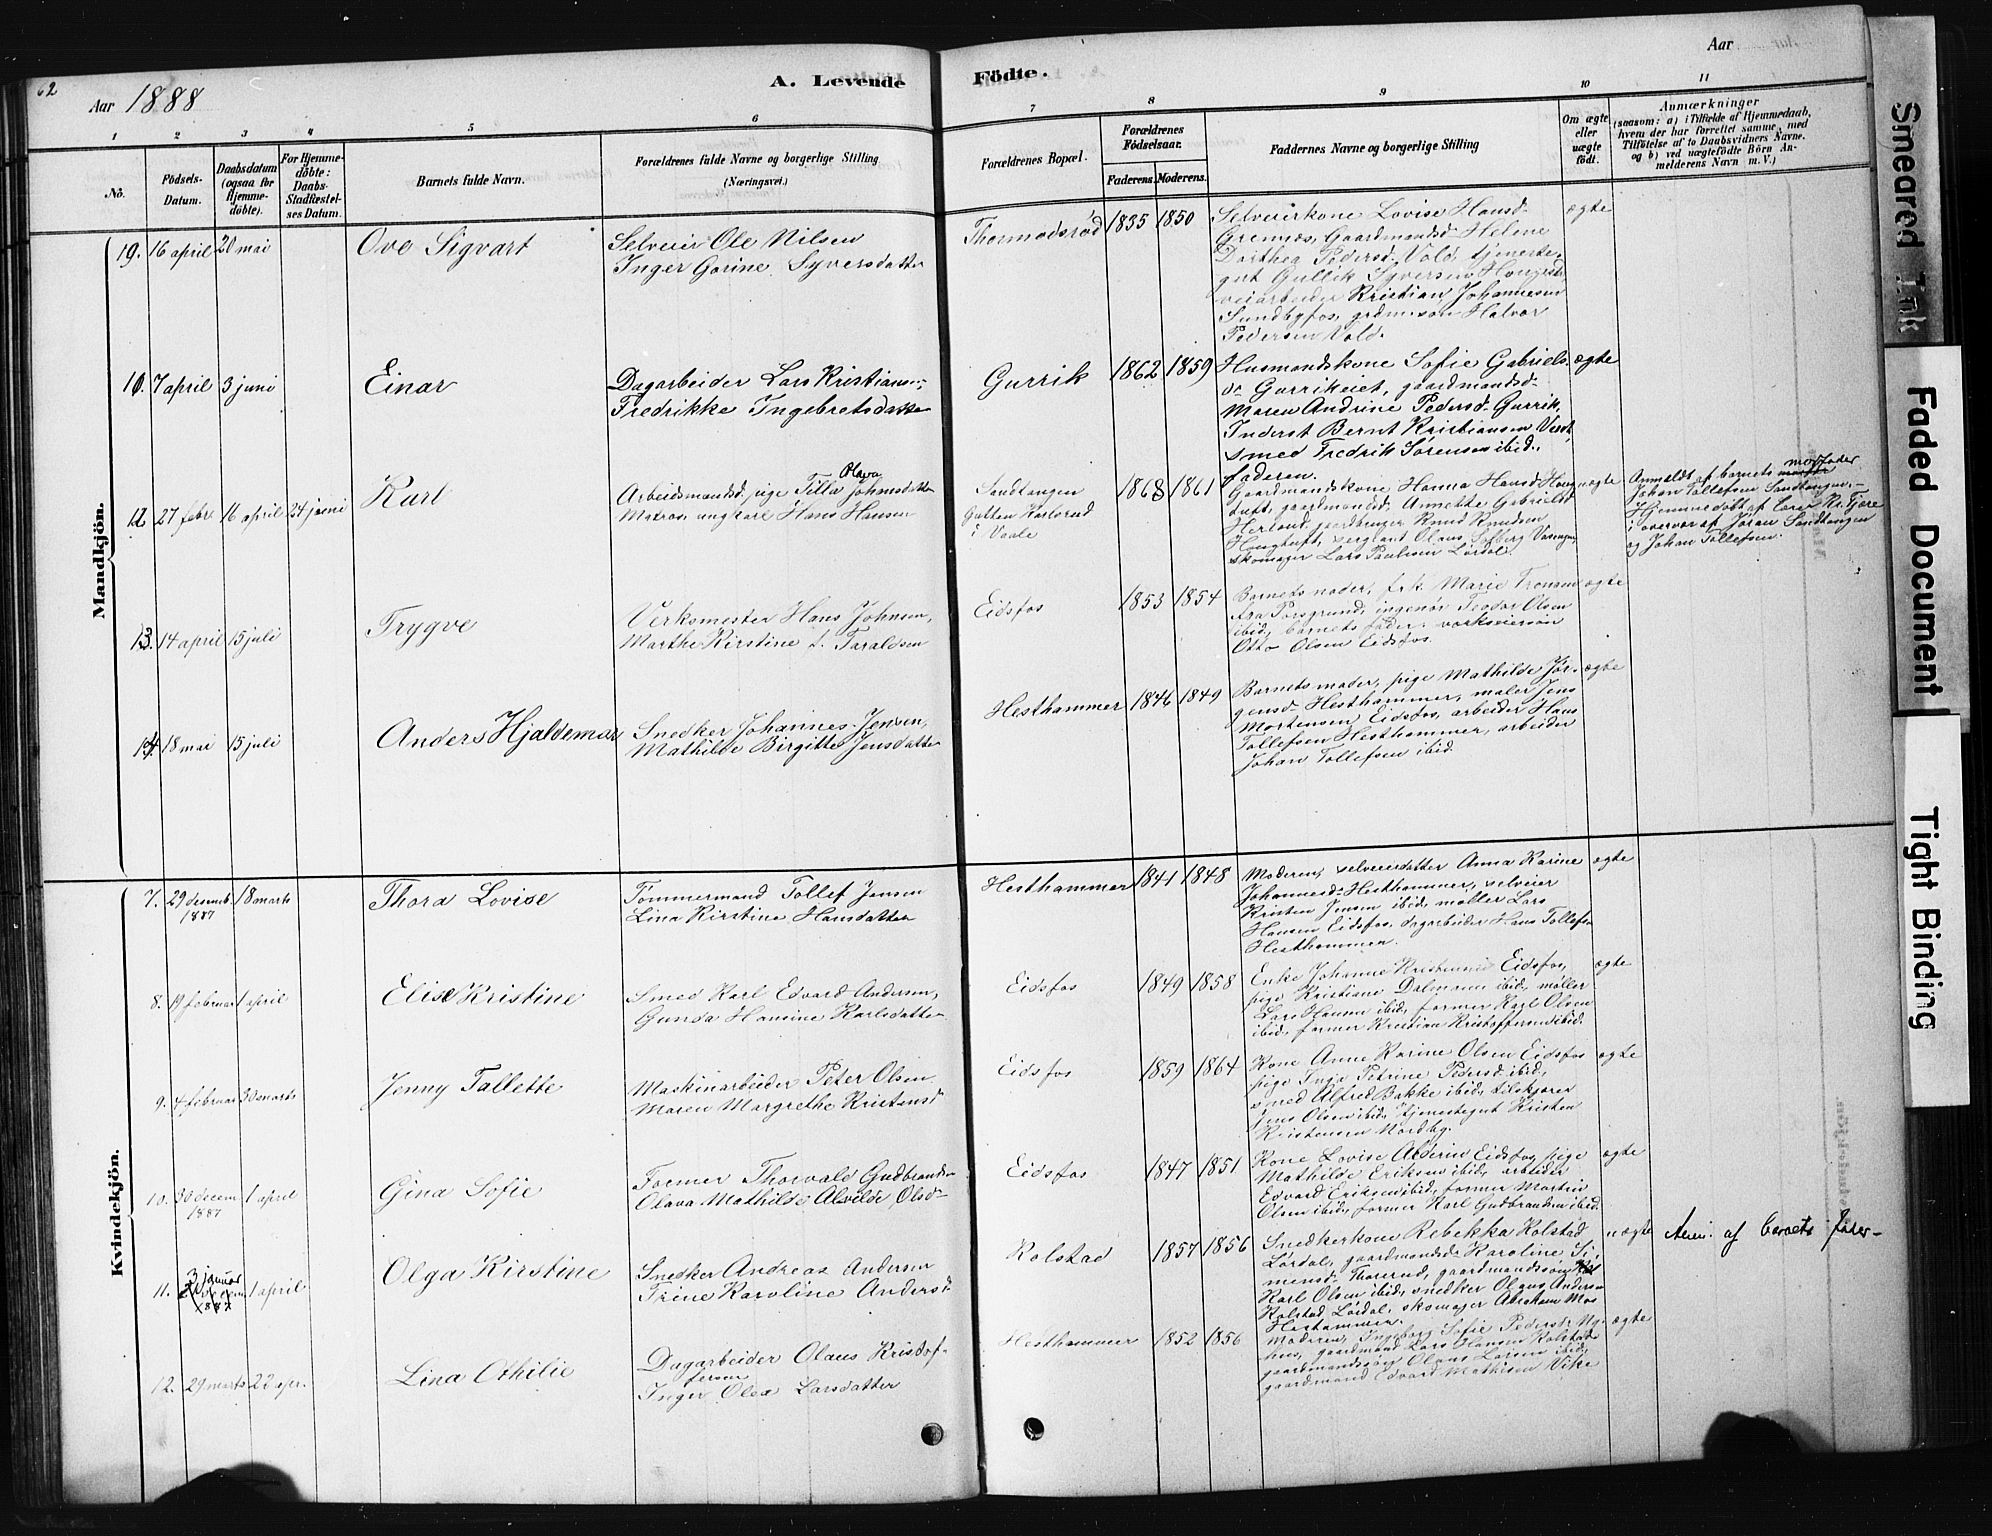 62
Aar 1888
A. Levende
Födte.
Aar
1 2 3 4 5 6 7 8 9 10 11
No.
Födsels-
Datum.
Daabsdatum
(ogsaa for
Hjemme-
döbte).
For Hjemme-
döbte:
Daabs-
Stadfæstel-
ses Datum.
Barnets fulde Navn.
Forældrenes fulde Navne og borgerlige Stilling
(Næringsvei.)
Forældrenes Bopæl.
Forældrenes
Födselsaar.
Faderens. Moderens.
Faddernes Navne og borgerlige Stilling
Om ægte
eller
uægte
födt.
Anmærkninger
(saasom: a) i Tilfælde af Hjemmedaab,
hvem der har forrettet samme, med
Tilföielse af to Daabsvidners Navne.
og b) ved uægtefödte Börn An-
melderens Navn m. V.)
Mandkjön.
16 april 20 mai Ove Sigvart
Selveier Ole Nilsen
Inger Gorine Syversdatter
Thormodsrød 1835 1850
Selveierkone Lovise Hansd-
Grennes, Gaardmandsd- Helene
Dorthea Pedersd- Vold, tjeneste-
gut Gullik Syversen
veiarbeider Kristian Johannesen
Sundbyfos, grdm.søn Halvor
Pedersen Vold.
ægte
7 april 3 juni Einar
Dagarbeider Lars Kristiansen,
Fredrikke Ingebretsdatter
Gurrik 1862 1859
Husmandskone Sofie Gabriels-
d- Gurrikeiet, gaardmandsd-
Maren Andrine Pedersd- Gurrik,
Inderst Bernt Kristiansen
smed Fredrik Sørensen ibid.,
faderen.
ægte
12 27 febr 16 april 24 juni Karl
Olava
Arbeidsmandsd. pige Tilla Johansdatter
Matros, ungkarl Hans Hansen
Sandtangen
Gutten Karlsrud
i Vaale
1868 1861
Gaardmandskone Hanna Hansd-
tuft, gaardmandsd- Annette Gabrielsd-
gaardbruger Knud Knudsen
Haugtuft, sergeant Olaus Solberg
skomager Lars Paulsen Lørdal
uægte
Anmeldt af barnets morfader
Johan Tollefsen Sandtangen.-
Hjemmedøbt af lærer Kr. Fjære
i overvær af Jøran Sandtangen
og Johan Tollefsen.
13. 14 april 15 juli Trygve
Verksmester Hans Johnsen,
Marthe Kirstine f. Taraldsen
Eidsfos 1853 1854
Barnets moder, frk. Marie
fra Porsgrund, ingeniør Teodor Olsen
ibid, barnets fader, verkseiersøn
Otto Olsen Eidsfos.
ægte
14 18 mai 15 juli Anders Hjaldemar
Snedker Johannes Jensen,
Mathilde Birgitte Jensdatter
Hesthammer 1846 1849
Barnets moder, pige Mathilde Jør-
gensd- Hesthammer, maler Jens
Mortensen Eidsfos, arbeider Hans
Tollefsen Hesthammer, arbeider
Johan Tollefsen ibid
ægte
Kvindekjön.
7. 29 decemb. 18 marts
1887
Thora Lovise
Tømmermand Tollef Jensen
Lina Kirstine Hansdatter
Hesthammer 1841 1848
Moderen, selveierdatter Anna Karine
Johannesd- Hesthammer, selveier
Kristen Jensen ibid, møller Lars
Hansen Eidsfos, dagarbeider Hans Tollefsen
Hesthammer.
ægte
8. 19 februar 1 april Elise Kristine
Smed Karl Edvard Andersen,
Gunda Hansine Karlsdatter
Eidsfos 1849 1858
Enke Johanne Eidsfos,
pige Kristiane Dalmann ibid, møller
Lars Hansen ibid, former Karl Olsen
ibid, former Kristian Kristoffersen ibid.
ægte
9. 4 februar 30 marts Jenny Tallette
Maskinarbeider Peter Olsen
Maren Margrethe Kristensd-
Eidsfos 1859 1864
Kone Anne Karine Olsen Eidsfos
pige Inga Petrine Pedersd- ibid,
smed Alfred Bakke ibid, tilskjærer
Jens Olsen ibid, tjenestegut Kristen
Kristensen Nordby.
ægte
10. 30 decem 1 april
1887
Gina Sofie
Former Thorvald Gudbrands-
Olava Mathilde Alvilde Olsd-
Eidsfos 1847 1851
Kone Lovise Eidsfos, pige
Mathilde Eriksen ibid, arbeider
Edvard Eriksen ibid, former Martin
Olsen ibid, former Karl Gudbrandsen ibid.
ægte
11. 3 januar 1 april
1887
Olga Kirstine
Snedker Andreas Andersen
Trine Karoline Andersd-
Kolstad 1857 1856
Snedkerkone Rebekka Kolstad
Lørdal, gaardmandsd- Karoline Si-
mensd- Thorerud, gaardmandssøn
Karl Olsen ibid, snedker Olaus Andersen
Kolstad Lørdal, skomager Abraham Moe
Hesthammer.
uægte
Anm. af barnets fader-
12. 29 marts 22 apr. Lina Othilie
Dagarbeider Olaus Kristof-
fersen
Inger Olea Larsdatter
Hesthammer 1852 1856
Moderen, Ingeborg Sofie Pedersd- Ny-
hus, gaardmand Lars Hansen Kolstad
gaardmandssøn Olaus Larsen ibid,
gaardmand Edvard Mathisen Vike
ægte
Smeared Ink
Faded Document
Tight Binding